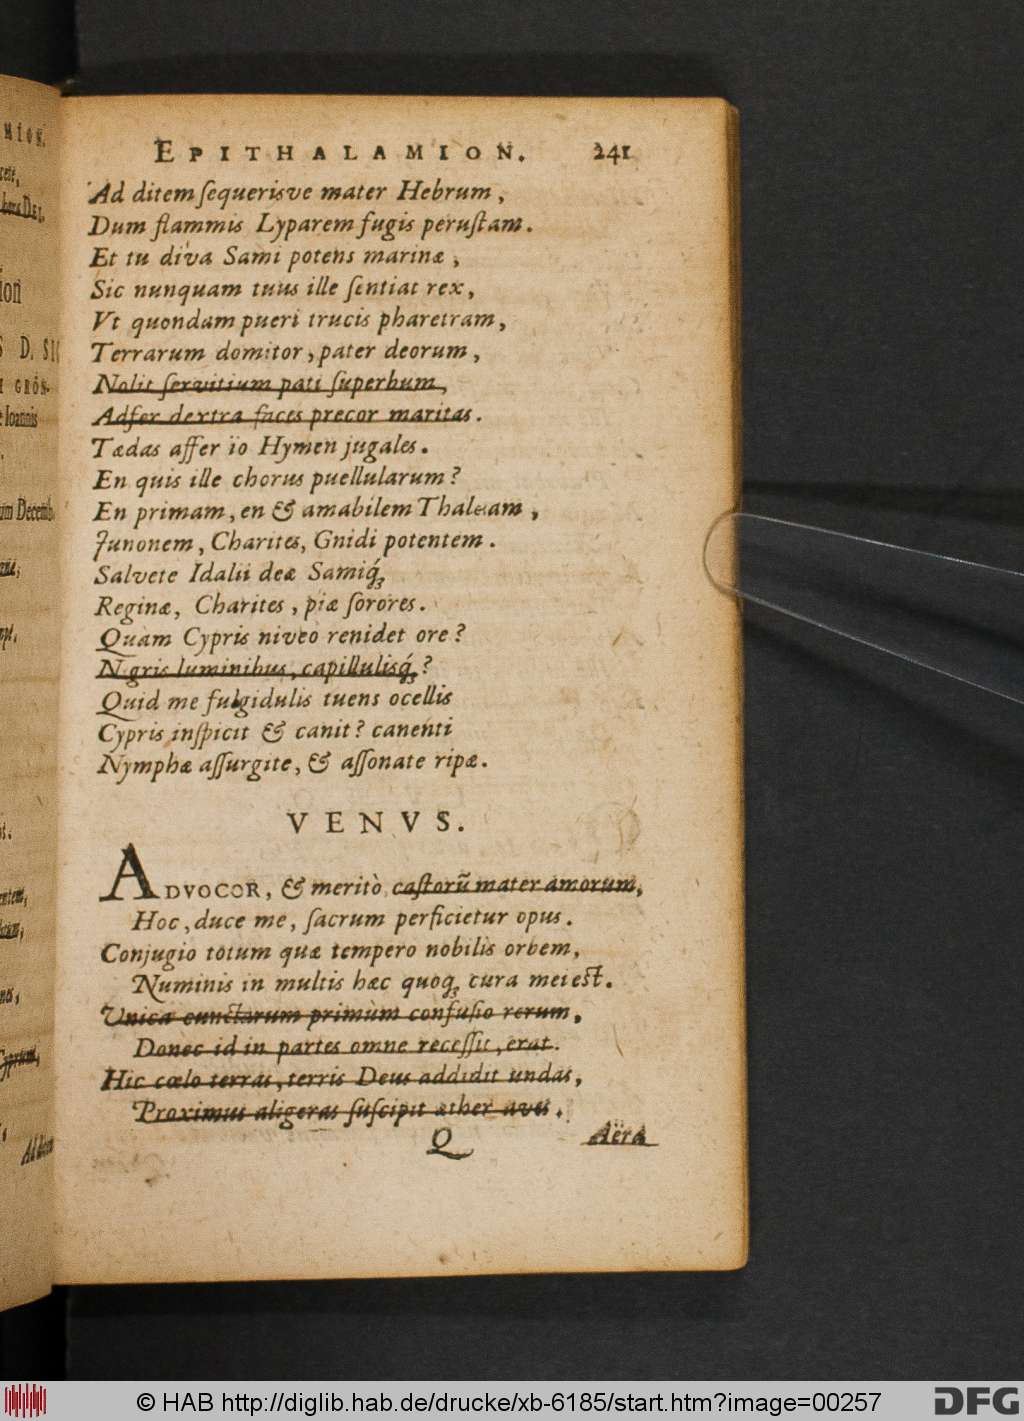 EPITHALAMION. 241
Ad ditem sequerisve mater Hebrum,
Dum flammis Lyparem fugis perustam.
Et tu diva Sami potens marinæ,
Sic nunquam tuus ille sentiat rex,
Vt quondam pueri trucis pharetram,
Terrarum domitor, pater deorum,
Nolit servitium pati superbum,
Adfer dextra faces precor maritas.
Tædas affer ïo Hymen jugales.
En quis ille chorus puellularum?
En primam, en & amabilem Thaleam,
Junonem, Charites, Gnidi potentem.
Salvete Idalii deæ Samiq́;
Reginæ, Charites, piæ sorores.
Quàm Cypris niveo renidet ore?
N gris luminibus, capillulisq́;?
Quid me fulgidulis tuens ocellis
Cypris inspicit & canit? canenti
Nymphæ assurgite, & assonate ripæ.
VENVS.
ADVOCOR, & meritò castorũ mater amorum,
Hoc, duce me, sacrum perficietur opus.
Conjugio totum quæ tempero nobilis orbem,
Numinis in multis hæc quoq; cura mei est.
Unica cunctarum primùm confusio rerum,
Donec id in partes omne recessit, erat.
Hic cœlo terras, terris Deus addidit undas,
Proximus aligeras suscipit æther aves.
Q Aëra
© HAB http://diglib.hab.de/drucke/xb-6185/start.htm?image=00257
DFG